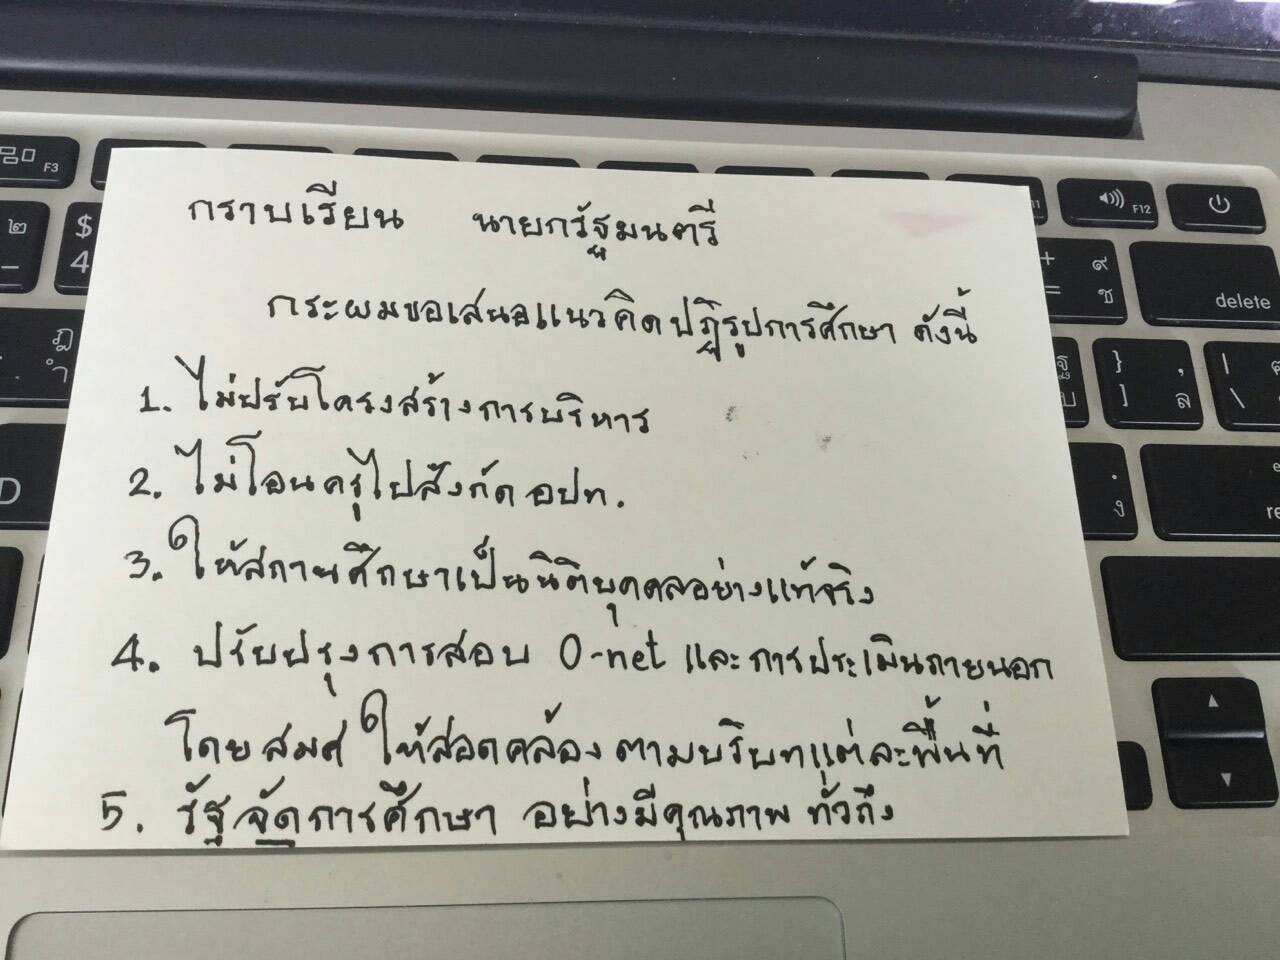 กราบเรียน นายกรัฐมนตรี
กระผมขอเสนอแนวคิดปฏิรูปการศึกษา ดังนี้
1. ไม่ปรับโครงสร้างการบริหาร
2. ไม่โอนครูไปสังกัด อปท.
3. ให้สถานศึกษาเป็นนิติบุคคลอย่างแท้จริง
4. ปรับปรุงการสอบ O-net และการประเมินภายนอก
โดย สมศ ให้สอดคล้องตามบริบทแต่ละพื้นที่
5. รัฐจัดการศึกษา อย่างมีคุณภาพ ทั่วถึง
F3
F12
๒
-
$
4
+
=
๙
ช
delete
ฎ
ำ
}
]
,
ล
|
\
D
.
ง